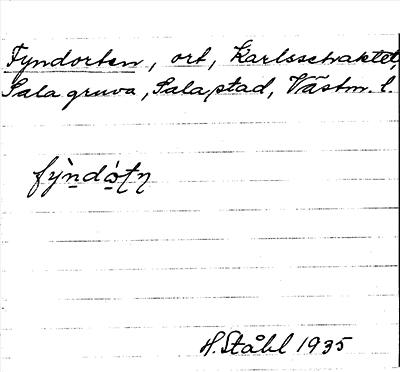 Fyndorten, ort, Karlsschaktet,
Sala gruva, Sala stad, Västm. l.
fỳndót̨n
H. Ståhl 1935